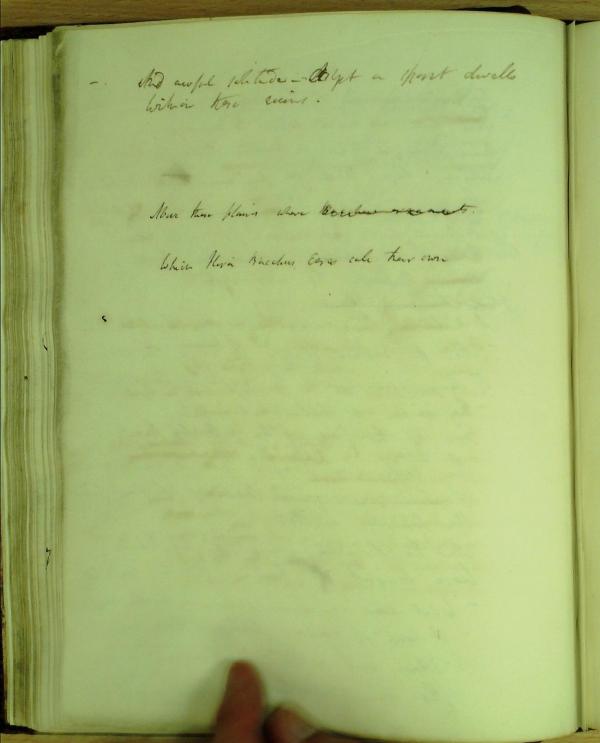 And awful solitude - Yet a spirit dwells
Within these ruins.
Near these plains where
Which Flora Bacchus Ceres call their own